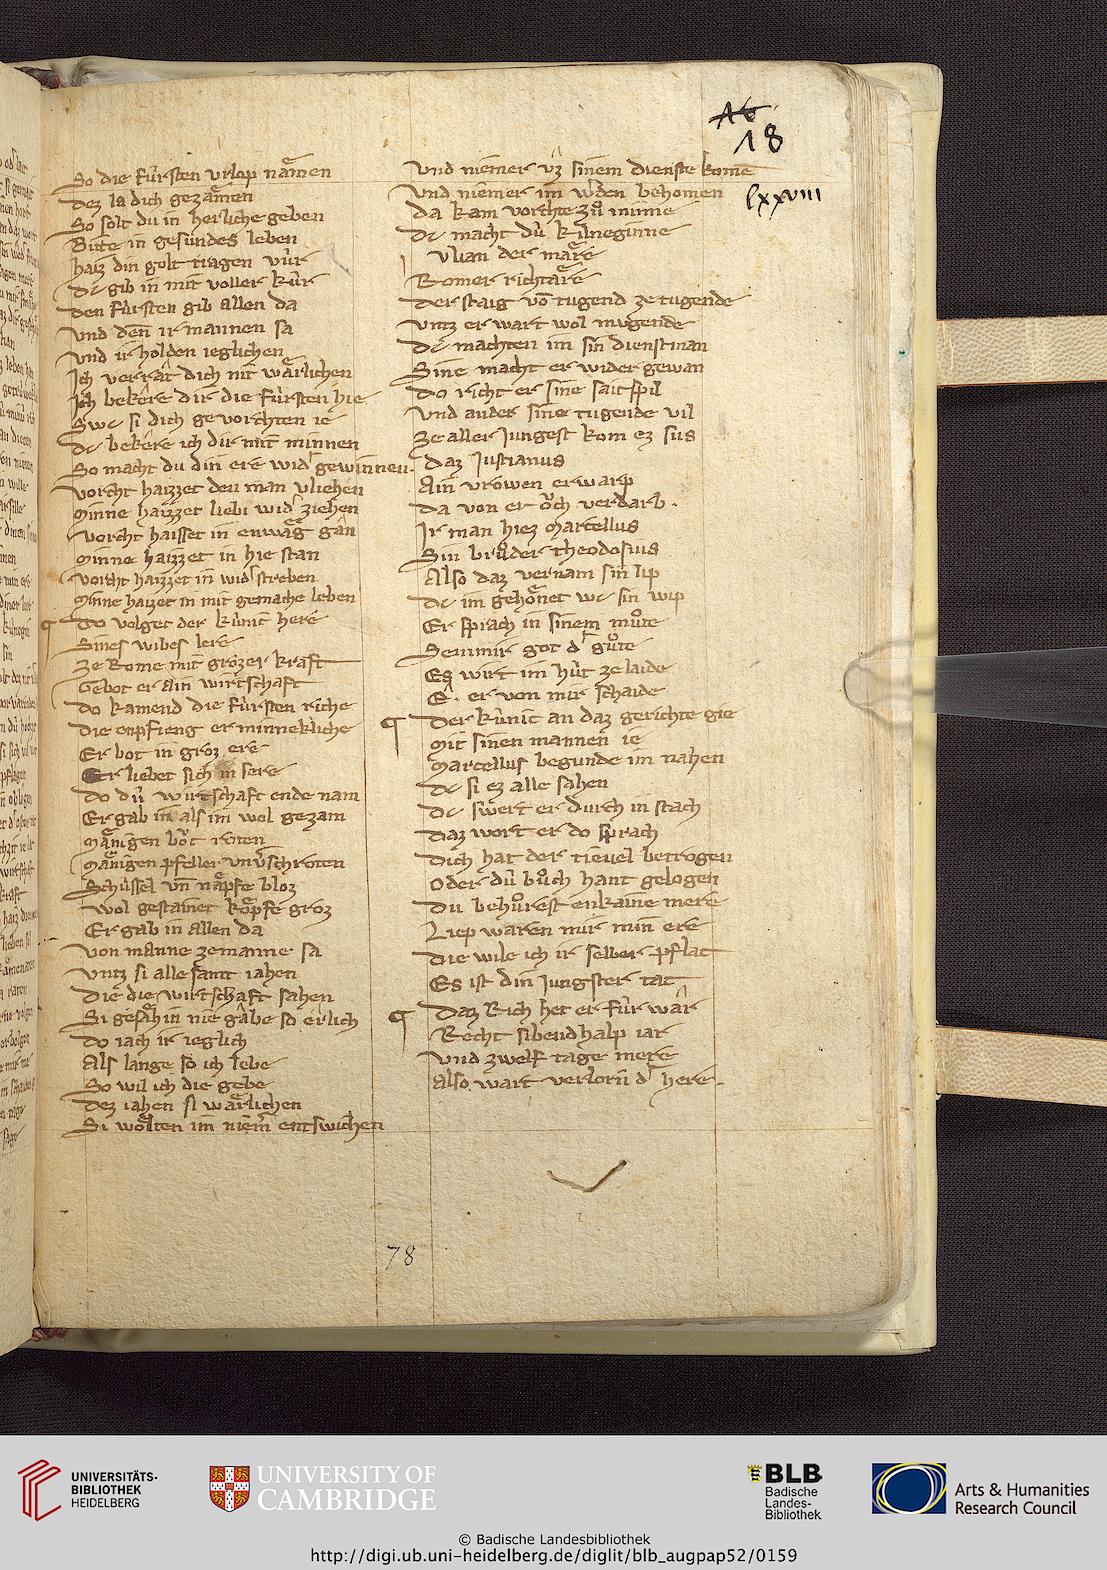 18
lxxviii
So die fúrsten vrlop námen
Dez la dich gezámen
So solt du in herliche geben
Bitte in gesundes leben
haiz din golt tragen vúr
Dc gib in mit voller kúr
Den fúrsten gib allen da
Vnd den ir mannen sa
Vnd ir holden ieglichen
Ich verrat dich nit wárlichen
Ich bekêre dir die fúrsten hie
Swc si dich gevorchten ie
Dc bekêre ich dir mit minnen
So macht du din ere wid gewinnen.
Vorcht haizzet den man vliehen
Minne haizzet liebi wid ziehen
Vorcht haisset in enwág gân
Minne haizzet in hie stan
Vorcht haizzet in wid streben
Minne haizet in mit gemache leben
Do volget der kúnic here
Sines wibes lere
Ze Rome mit grózer kraft
Gebot er ain wirtschaft
Do kamend die fúrsten riche
Die enpfieng er minnekliche
Er bot in groz ere
Er liebet sich in sere
Do dú wirtschaft ende nam
Er gab in als im wol gezam
Mánigen bôt roten
Mánigen pfeller vnvschroten
Schússel vn nápfe bloz
Wol gestainet kópfe groz
Er gab in allen da
Von manne ze manne sa
Vntz si alle samt iahen
Die die wirtschaft sahen
Si gesáhin nie gábe so erlich
Do iach ir ieglich
Als lange so ich lebe
So wil ich die gebe
Dez iahen si wárlichen
Si wólten im niem entswichen
Vnd niemer vz sinem dienste kome
Vnd niemer im wden behomen
Da kam vorchte zů minne
Dc macht dú kúneginne
Vlian der máre
Romer richtáre
Der staig vō tugend ze tugende
Vntz er wart wol mugende
Dc machten im sin dienstman
Sine macht er wider gewan
Do richt er sine saitspil
Vnd ander sine tugende vil
Ze aller Jungest kom ez sus
Daz Justianus
Ain vrowen erwarp
Da von er ôch verdarb.
Ir man hiez Martellus
Sin brůder theodosius
Also daz vernam sin lip
Dc im gehónet wc sin wip
Er sprach in sinem můte
Semmir got d gůte
Es wirt im hút ze laide
E. er von mir schaide
Der kúnic an daz gerichte gie
Mit sinen mannen ie
Martellus begunde im nahen
Dc si ez alle sahen
Dc swert er durch in stach
Daz wort er do sprach
Dich hat der tieuel betrogen
Oder dú bůch hant gelogen
Du behůrest enkaine mere
Liep waren mir min ere
Die wile ich ir selber pflat
Es ist din Jungster tat
Daz Rich het er fúr wâr
Recht sibendhalp iar
Vnd zwelf tage mere
Also wart verlorn d here.
78
UNIVERSITÄTS-
BIBLIOTHEK
HEIDELBERG
UNIVERSITY OF
CAMBRIDGE
BLB
Badische
Landes-
Bibliothek
Arts & Humanities
Research Council
© Badische Landesbibliothek
http://digi.ub.uni-heidelberg.de/diglit/blb_augpap52/0159